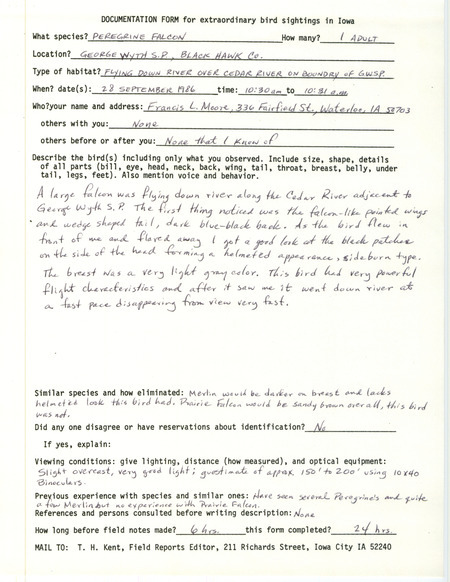 DOCUMENTATION FORM for extraordinary bird sightings in Iowa
What species? PEREGRINE FALCON How many? 1 ADULT
Location? GEORGE WYTH S.P., BLACK HAWK CO.
Type of habitat? FLYING DOWN RIVER OVER CEDAR RIVER ON BOUNDRY OF GWSP.
When? date(s): 28 SEPTEMBER 1986 time: 10:30 am to 10:31 a.m.
Who? your name and address: Francis L. Moore, 336 Fairfield St., Waterloo, IA 50703
others with you: None
others before or after you: None that I know of
Describe the bird(s) including only what you observed. Include size, shape, details
of all parts (bill, eye, head, neck, back, wing, tail, throat, breast, belly, under
tail, legs, feet). Also mention voice and behavior.
A large falcon was flying down river along the Cedar River adjacent to
George Wyth S.P. The first thing noticed was the falcon-like pointed wings
and wedge shaped tail, dark blue-black back. As the bird flew in
front of me and flared away I got a good look at the black patches
on the side of the head forming a helmeted appearance, sideburn type.
The breast was a very light gray color. This bird had very powerful
flight characteristics and after it saw me it went down river at
a fast pace disappearing from view very fast.
Similar species and how eliminated: Merlin would be darker on breast and lacks
helmeted look this bird had. Prairie Falcon would be sandy brown overall, this bird
was not.
Did any one disagree or have reservations about identification? No
If yes, explain:
Viewing conditions: give lighting, distance (how measured), and optical equipment:
Slight overcast, very good light; guestimate of approx 150' to 200' using 10x40
Binoculars.
Previous experience with species and similar ones: Have seen several Peregrine's and quite
a few Merlin but no experience with Prairie Falcon.
References and persons consulted before writing description: None
How long before field notes made? 6 hrs. this form completed? 24 hrs.
MAIL TO: T. H. Kent, Field Reports Editor, 211 Richards Street, Iowa City IA 52240